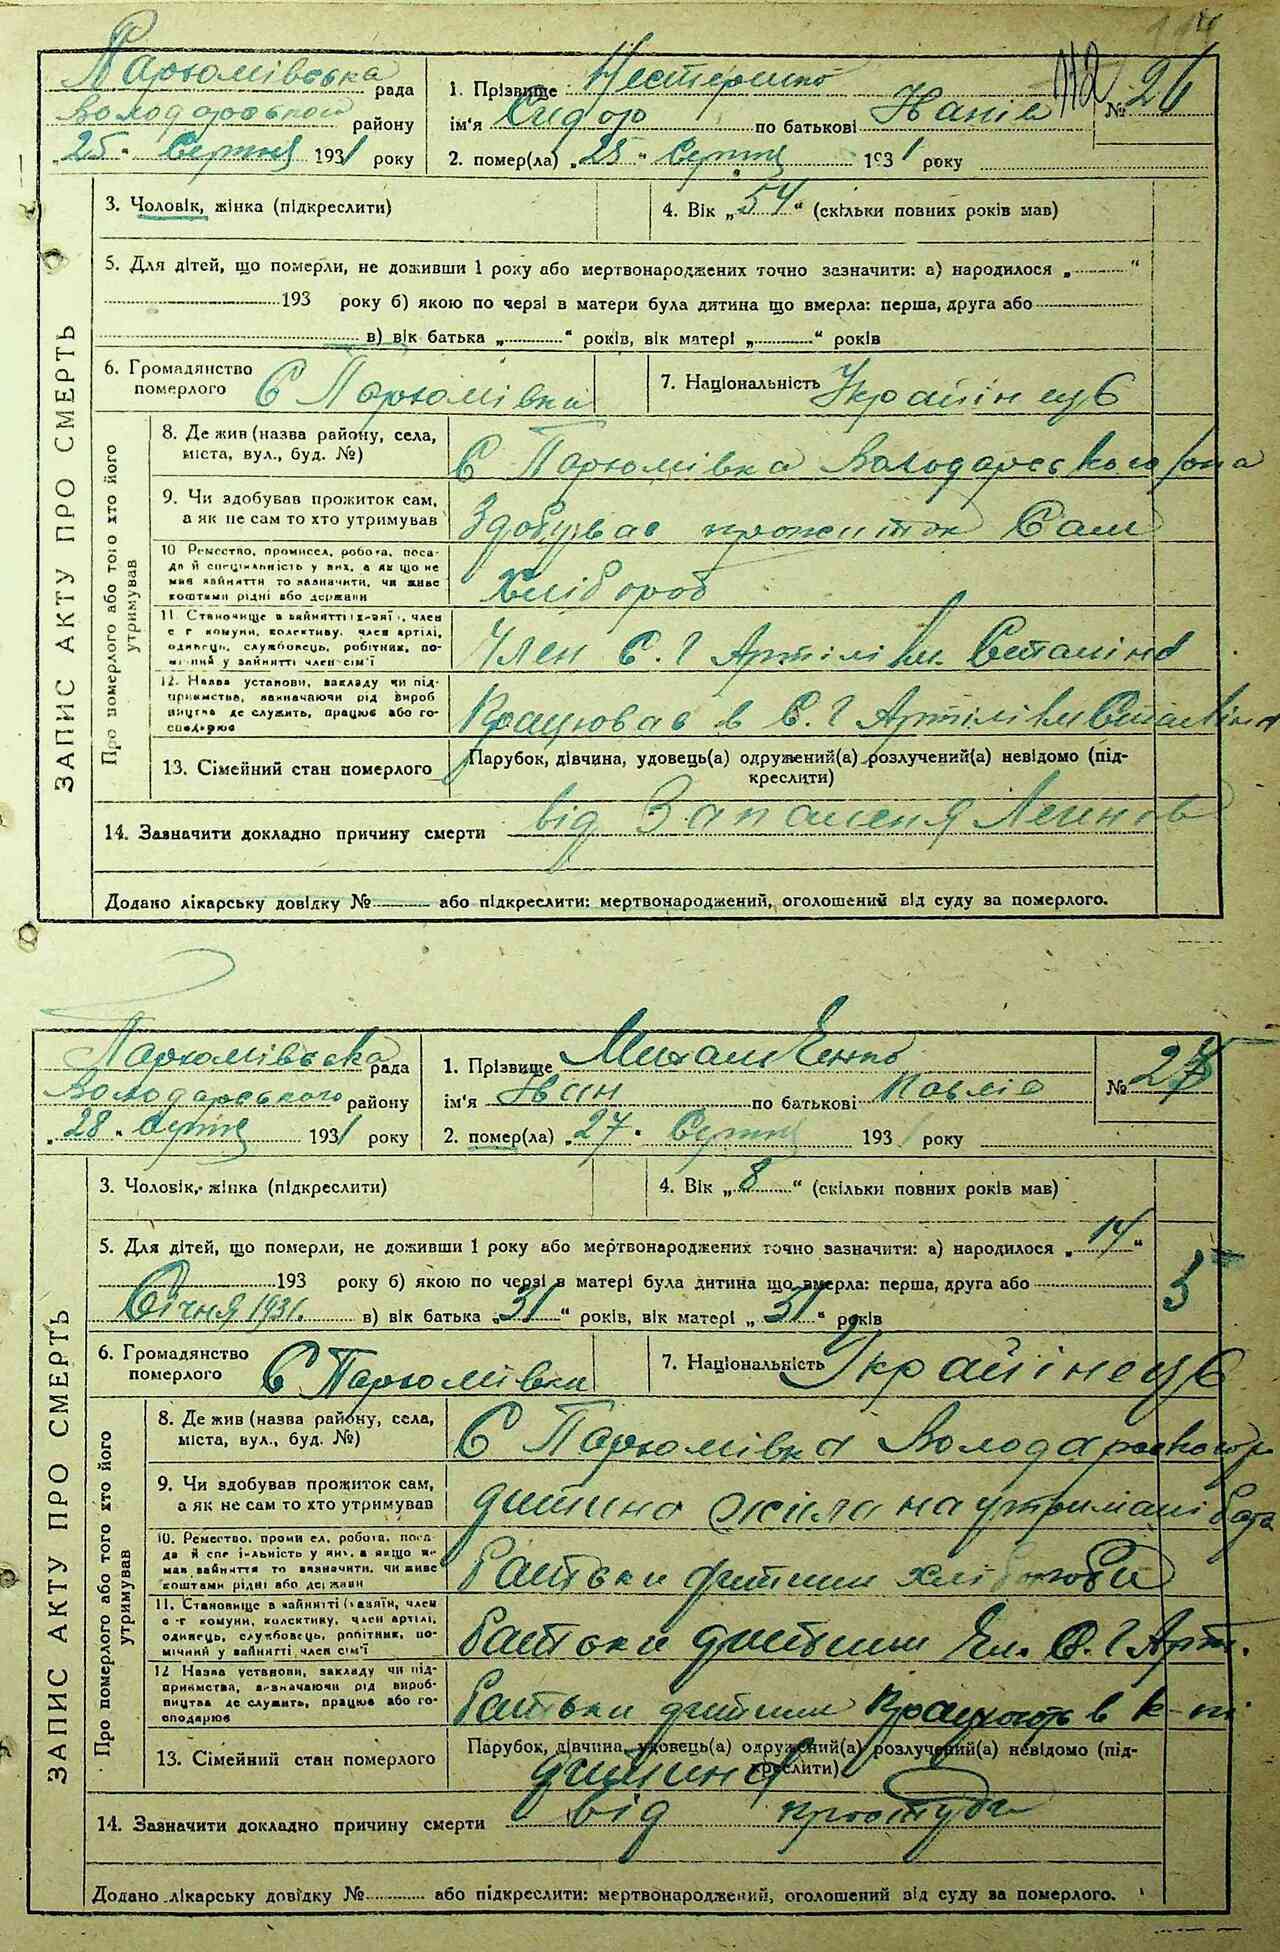 Парюмівська рада
Володарський району
"25" Серпня 1931 року
1. Прізвище Нестеренко
ім'я Сидор по батькові Іванів
№ 26
112
2. помер(ла) "25" Серпня 1931 року
ЗАПИС АКТУ ПРО СМЕРТЬ
3. Чоловік, жінка (підкреслити)
4. Вік "54" (скільки повних років мав)
5. Для дітей, що померли, не доживши 1 року або мертвонароджених точно зазначити: а) народилося "........."
193 року б) якою по черзі в матери була дитина що вмерла: перша, друга або
в) вік батька "........." років, вік матері "........." років
6. Громадянство померлого С Парюмівки
7. Національність Українець
Про померлого або того хто його утримував
8. Де жив (назва району, села, міста, вул., буд. №)
С Парюмівка Володарського р/она
9. Чи здобував прожиток сам, а як не сам то хто утримував
Здобував прожиток Сам
10. Ремество, промисел, робота, посада й спеціяльність у них, а як що не мав зайняття то зазначити, чи живе коштами рідні або держави
Хлібороб
11. Становище в зайнятті (хазяїн, член с г комуни, колективу, член артілі, одинець, службовець, робітник, помічний у зайнятті член сім'ї
Член С. Г Артілі Ім. Сталіна
12. Назва установи, закладу чи підприємства, зазначаючи рід виробництва де служить, працює або господарює
Працював в С. Г Артілі Ім Сталіна
13. Сімейний стан померлого
Парубок, дівчина, удовець(а) одружений(а) розлучений(а) невідомо (підкреслити)
14. Зазначити докладно причину смерти від Запаленя Легенів
Додано лікарську довідку № або підкреслити: мертвонароджений, оголошений від суду за померлого.
Парюмівська рада
Володарського району
"28" Серпня 1931 року
1. Прізвище Михайленко
ім'я Іван по батькові Павлів
№ 27
2. помер(ла) "27" Серпня 1931 року
ЗАПИС АКТУ ПРО СМЕРТЬ
3. Чоловік, жінка (підкреслити)
4. Вік "8" (скільки повних років мав)
5. Для дітей, що померли, не доживши 1 року або мертвонароджених точно зазначити: а) народилося "14"
193 року б) якою по черзі в матері була дитина що вмерла: перша, друга або
Січня 1931. в) вік батька "31" років, вік матері "31" років
5
6. Громадянство померлого С Парюмівки
7. Національність Українець
Про померлого або того хто його утримував
8. Де жив (назва району, села, міста, вул., буд. №)
С Парюмівка Володарського р
9. Чи здобував прожиток сам, а як не сам то хто утримував
дитина жила на утримані бать
10. Ремество, промисел, робота, посада й спеціяльність у них, а якщо не мав зайняття то зазначити, чи живе коштами рідні або держави
Батьки дитини хлібороби
11. Становище в зайнятті (хазяїн, член с-г комуни, колективу, член артілі, одинець, службовець, робітник, помічний у зайнятті член сім'ї
Батьки дитини Чл. С. Г Арт.
12 Назва установи, закладу чи підприємства, зазначаючи рід виробництва де служить, працює або господарює
Батьки дитини Працюють в к-ті
13. Сімейний стан померлого
Парубок, дівчина, удовець(а) одружений(а) розлучений(а) невідомо (підкреслити)
дитина
14. Зазначити докладно причину смерти від простуди
Додано лікарську довідку № або підкреслити: мертвонароджений, оголошений від суду за померлого.